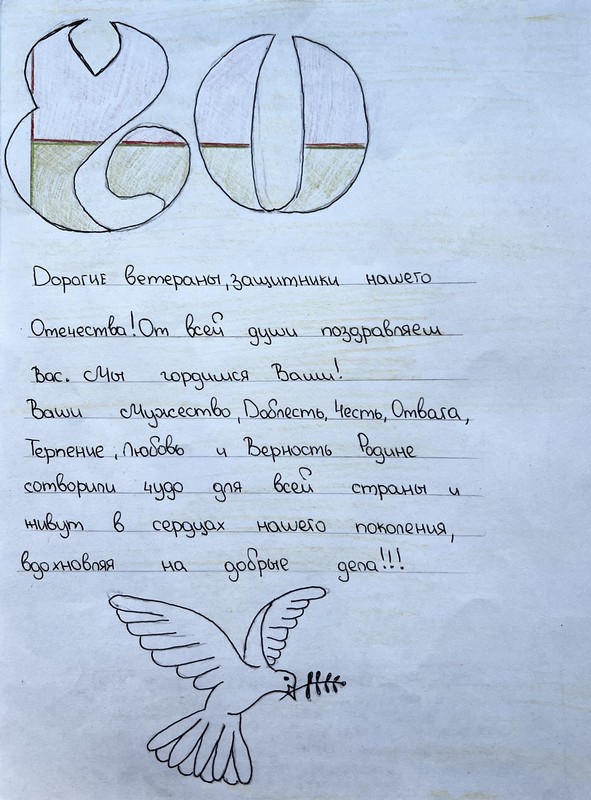 80
Дорогие ветераны, защитники нашего
Отечества! От всей души поздравляем
Вас. Мы гордимся Вами!
Ваши Мужество, Доблесть, Честь, Отвага,
Терпение, Любовь и Верность Родине
сотворили чудо для всей страны и
живут в сердцах нашего поколения,
вдохновляя на добрые дела!!!